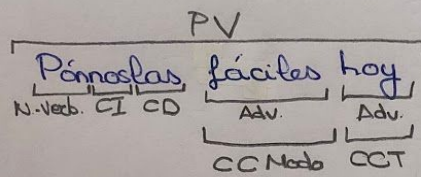 PV
Pónnoslas fáciles hoy
N.Verb. CI CD Adv. Adv.
CC Modo CCT